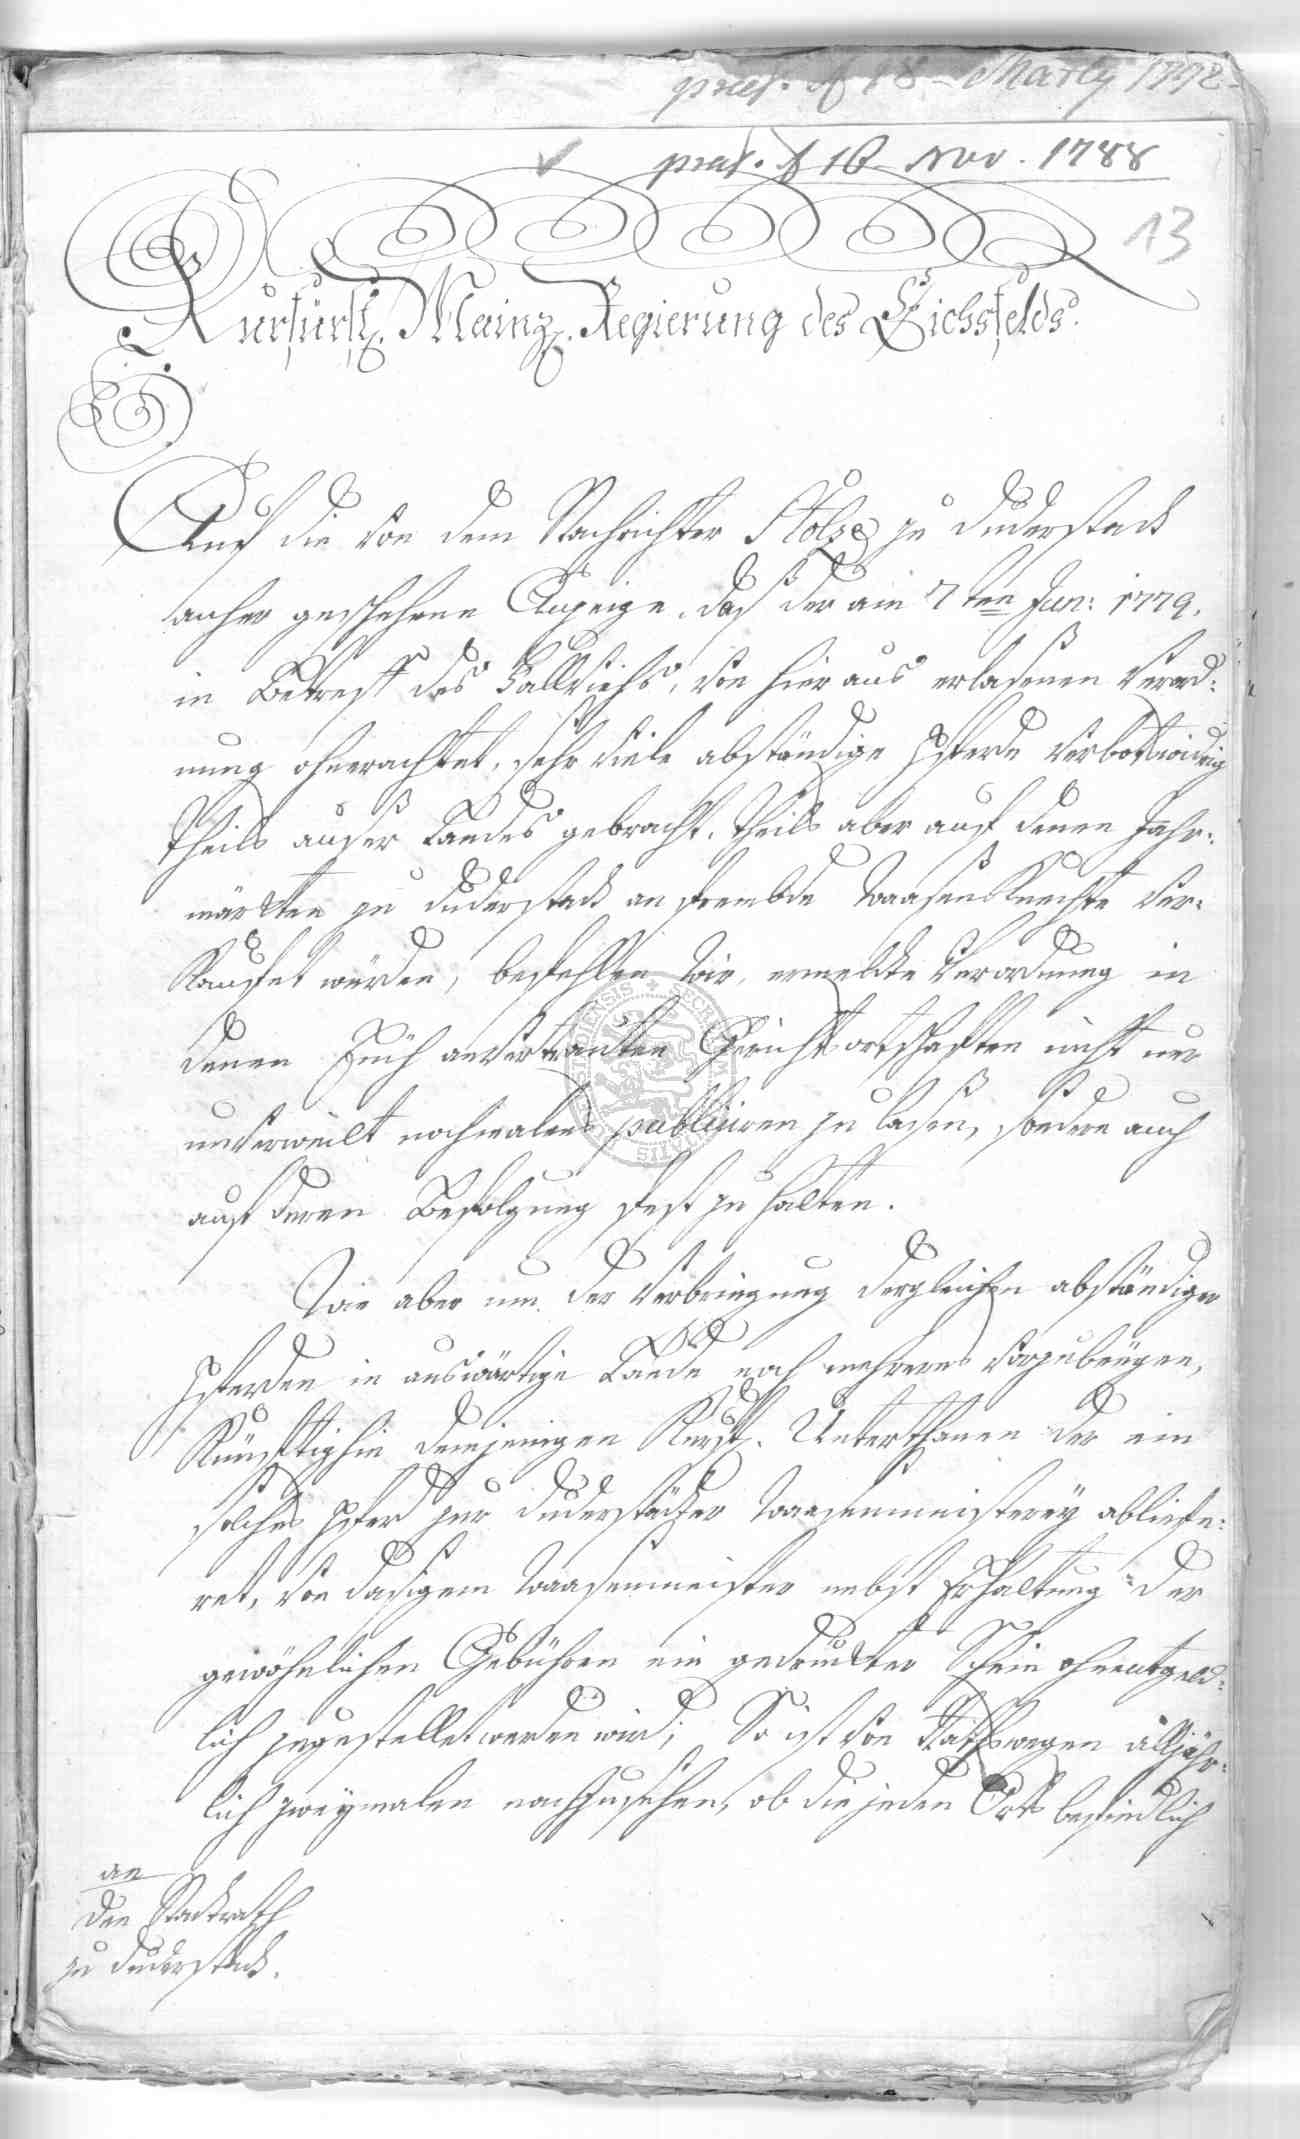 præs. d 18 Martij 1792.
præs. d 10 Nov. 1788
13
Kurfürstl. Mainz. Regierung des Eichsfelds.
Auf die von dem Nachrichter Stolze zu Duderstadt
anher geschehene Anzeige, daß der am 7ten Jun: 1779.
in Betreff des Fallviehs, von hier aus erlasenen Verord:
nung ohnerachtet, sehr viele abständige Pferde verbotwidrig
theils auser Landes gebracht, theils aber auf denen Jahr:
märckten zu Duderstadt an frembde Waasenknechte ver:
kaufet würden, befehlen wir, ermeldte Verordnung in
denen Euch anvertrauten Gerichtsortschaften nicht nur
unverweilt nochmalens publiciren zu lasen, sondern auch
auf deren Befolgung fest zu halten.
Wie aber um der Verbringung dergleichen abständiger
Pferden in auswärtige Lande noch mehreres vorzubeugen,
künftighin demjenigen Kurfstl. Unterthanen der ein
solches Pferd zur Duderstädter Waasenmeisterey abliefe:
ret, von dasigem Waasenmeister nebst Erhaltung der
gewöhnlichen Gebühren ein gedruckter Schein ohnentgeld:
lich zugestellet werden wird; So ist von Rathswegen alljähr:
lich zweymalen nachzusehen, ob die jeden Orts befindlich
an
den Stadtrath
zu Duderstadt.